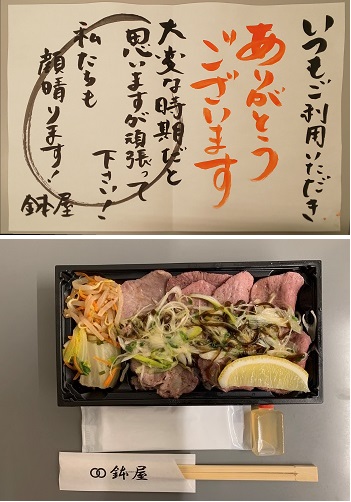 いつもご利用いただき
ありがとう
ございます
大変な時期だと
思いますが頑張って
下さい！
私たちも
顔晴ります！
鉢屋
鉢屋